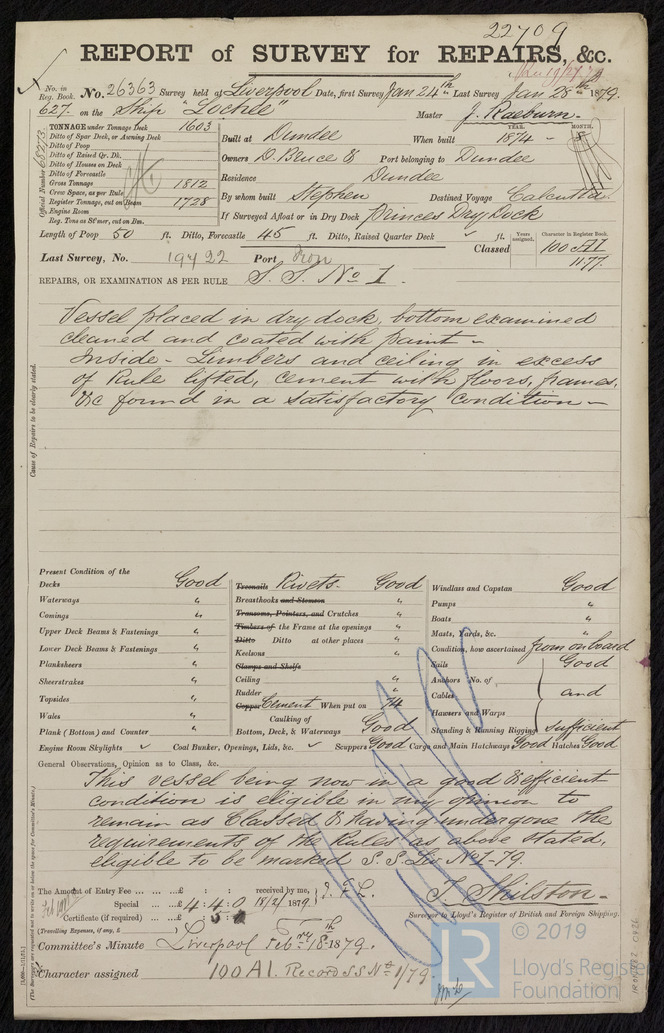 22709
REPORT of SURVEY for REPAIRS, &c.
No. in Reg. Book. No. 26363 Survey held at Liverpool Date, first Survey Jan 24th Last Survey Jan 28th 1879.
627. on the Ship "Lochee" Master J. Raeburn.
TONNAGE under Tonnage Deck 1603
Ditto of Spar Deck, or Awning Deck
Ditto of Poop
Ditto of Raised Qr. Dk.
Ditto of Houses on Deck
Ditto of Forecastle
Gross Tonnage 1812
Crew Space, as per Rule
Register Tonnage, cut on Beam 1728
Engine Room
Reg. Tons as St'mer, cut on Bm.
Official Number 68273
Built at Dundee When built YEAR. 1874 - MONTH. 8
Owners D. Bruce & Port belonging to Dundee
Residence Dundee
By whom built Stephen Destined Voyage Calcutta
If Surveyed Afloat or in Dry Dock Princes Dry Dock
Length of Poop 50 ft. Ditto, Forecastle 45 ft. Ditto, Raised Quarter Deck ✓ ft.
Years assigned. Character in Register Book.
Classed 100 A1
11.77.
Last Survey, No. 19422 Port Iron
REPAIRS, OR EXAMINATION AS PER RULE S. S. No 1.
Cause of Repairs to be clearly stated.
Vessel placed in dry dock, bottom examined
cleaned and coated with paint -
Inside - Limbers and ceiling in excess
of Rule lifted, cement with floors, frames,
&c found in a satisfactory condition -
Present Condition of the
Decks Good
Waterways "
Comings "
Upper Deck Beams & Fastenings "
Lower Deck Beams & Fastenings "
Planksheers "
Sheerstrakes "
Topsides "
Wales "
Plank (Bottom) and Counter "
Treenails Rivets. Good
Breasthooks and Stemson "
Transoms, Pointers, and Crutches "
Timbers of the Frame at the openings "
Ditto Ditto at other places "
Keelsons "
Clamps and Shelfs
Ceiling "
Rudder "
Copper Cement When put on 74
Caulking of
Bottom, Deck, & Waterways Good
Windlass and Capstan Good
Pumps "
Boats "
Masts, Yards, &c. "
Condition, how ascertained from on board
Sails Good
Anchors No. of
Cables and
Hawsers and Warps
Standing & Running Rigging sufficient
Engine Room Skylights ✓ Coal Bunker, Openings, Lids, &c. ✓ Scuppers Good Cargo and Main Hatchways Good Hatches Good
General Observations, Opinion as to Class, &c.
This vessel being now in a good & efficient
condition is eligible in my opinion to
remain as Classed & having undergone the
requirements of the Rules as above stated,
eligible to be marked S.S. Liv No 1-79.
The Amount of Entry Fee ... ... £ : : received by me,
Special ... £ 4 : 4 : 0 18/2/1879. J. F. L.
Certificate (if required) ... £ : 5 :
(Travelling Expenses, if any, £
T. Skilston.
Surveyor to Lloyd's Register of British and Foreign Shipping.
Committee's Minute Liverpool Feb'ry 18th 1879.
Character assigned 100 A1. Record S S No 1/79.
© 2019
LR
Lloyd's Register
Foundation